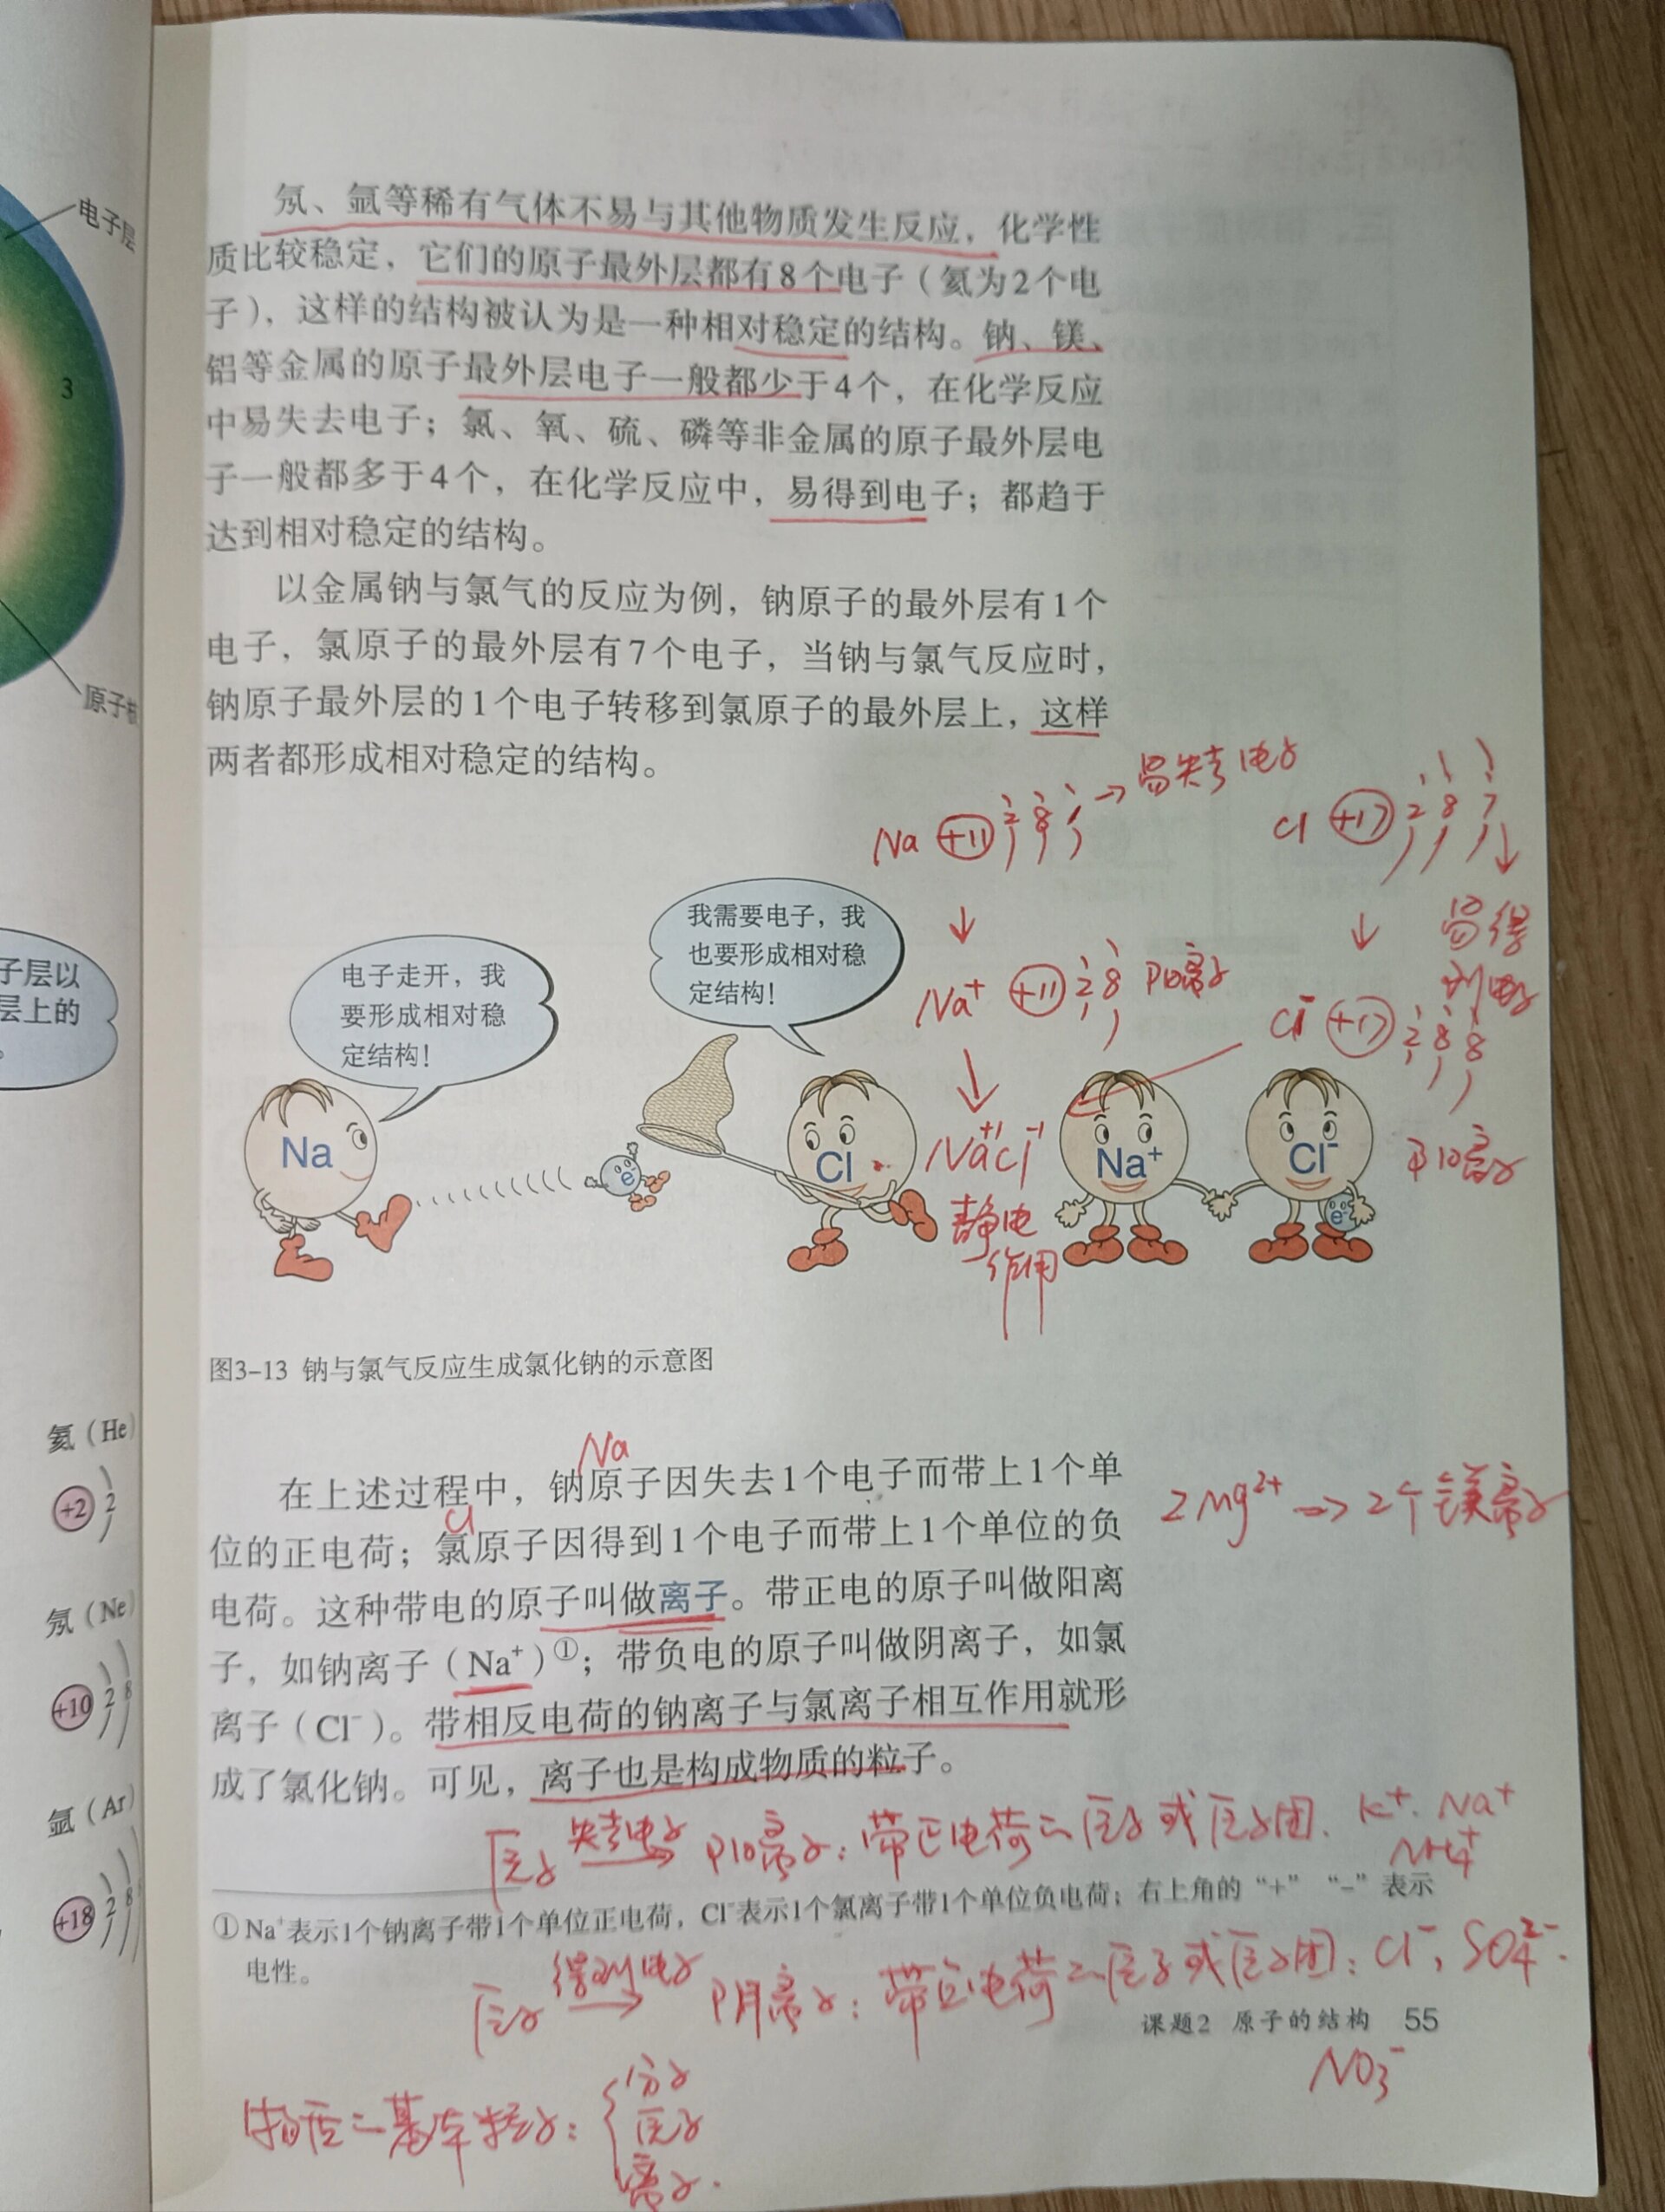 电子层
3
原子核
子层以
层上的
。
氦（He）
+2 2
氖（Ne）
+10 2 8
氩（Ar）
+18 2 8
氖、氩等稀有气体不易与其他物质发生反应，化学性
质比较稳定，它们的原子最外层都有8个电子（氦为2个电
子），这样的结构被认为是一种相对稳定的结构。钠、镁、
铝等金属的原子最外层电子一般都少于4个，在化学反应
中易失去电子；氯、氧、硫、磷等非金属的原子最外层电
子一般都多于4个，在化学反应中，易得到电子；都趋于
达到相对稳定的结构。
以金属钠与氯气的反应为例，钠原子的最外层有1个
电子，氯原子的最外层有7个电子，当钠与氯气反应时，
钠原子最外层的1个电子转移到氯原子的最外层上，这样
两者都形成相对稳定的结构。
Na +11 2 8 1 → 易失去电子
Cl +17 2 8 7
↓ 易得
到电子
↓
Na⁺ +11 2 8 阳离子
↓
Cl⁻ +17 2 8 8
阴离子
电子走开，我
要形成相对稳
定结构！
我需要电子，我
也要形成相对稳
定结构！
Na
e⁻
Cl
↓
+1 -1
NaCl
静电
作用
Na⁺
Cl⁻
e⁻
图3-13 钠与氯气反应生成氯化钠的示意图
Na
在上述过程中，钠原子因失去1个电子而带上1个单
Cl
位的正电荷；氯原子因得到1个电子而带上1个单位的负
电荷。这种带电的原子叫做离子。带正电的原子叫做阳离
子，如钠离子（Na⁺）①；带负电的原子叫做阴离子，如氯
离子（Cl⁻）。带相反电荷的钠离子与氯离子相互作用就形
成了氯化钠。可见，离子也是构成物质的粒子。
2Mg²⁺ => 2个镁离子
原子 失去电子→ 阳离子：带正电荷的原子或原子团. K⁺. Na⁺
NH₄⁺
① Na⁺表示1个钠离子带1个单位正电荷，Cl⁻表示1个氯离子带1个单位负电荷；右上角的“+”“-”表示
电性。
原子 得到电子→ 阴离子：带负电荷的原子或原子团：Cl⁻, SO₄²⁻.
课题2 原子的结构 55
NO₃⁻
构成的基本粒子：{分子
原子
离子.